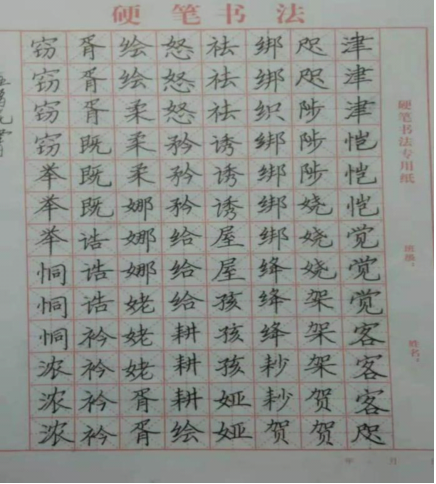 硬笔书法
津津津恺恺恺觉觉觉客客客咫
咫咫陟陟陟娆娆娆架架架贺贺
绑绑织绑绑绑绑绛绛绛耖耖贺
祛祛祛诱诱诱屋屋孩孩孩娅娅
怒怒怒矜矜矜给给给耕耕耕绘
绘绘柔柔柔娜娜娜姥姥姥胥胥
胥胥胥既既既诰诰诰衿衿衿衿
窃窃窃窃举举举恫恫恫浓浓浓
硬笔书法专用纸
班级:
姓名:
年 月